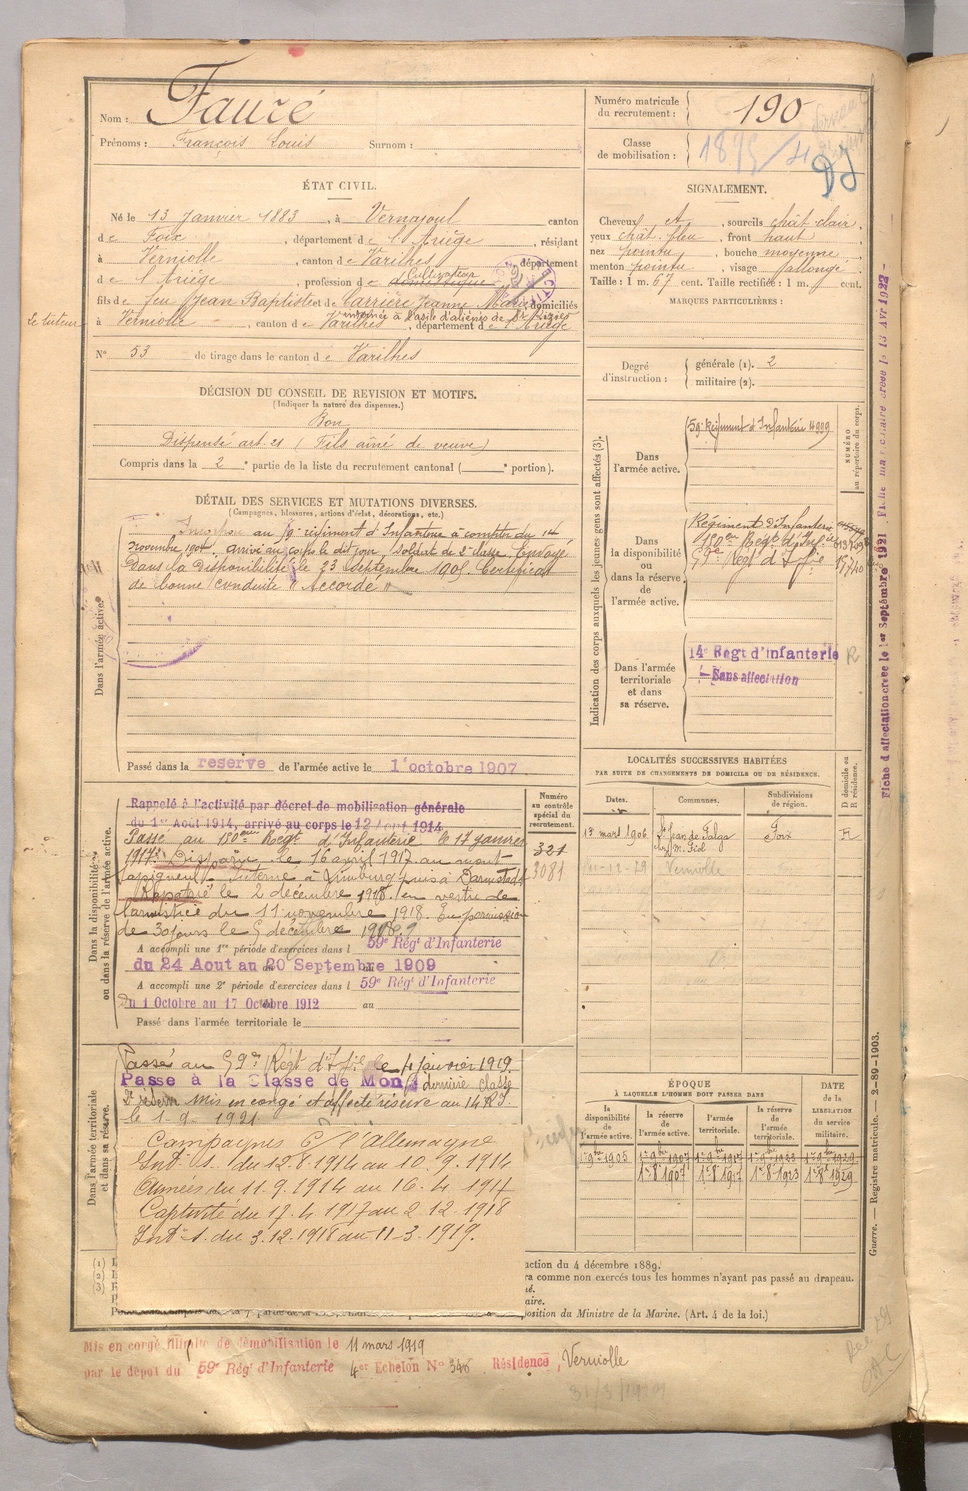 Nom : Fauré
Prénoms : François Louis Surnom :
Numéro matricule du recrutement : 190
Classe de mobilisation : 1895
ÉTAT CIVIL.
Né le 13 Janvier 1883, à Vernajoul canton
de Foix, département de l'Ariège, résidant
à Verniolle, canton de Varilhes département
de l'Ariège, profession de domestique Cultivateur
fils de feu Jean Baptiste et de Carrière Jeanne Marie domiciliés
internée à l'asile d'aliénés de St Lizier
Le tuteur à Verniolle, canton de Varilhes, département de l'Ariège
N° 53 de tirage dans le canton de Varilhes
SIGNALEMENT.
Cheveux et, sourcils chât clair,
yeux chât. bleu, front haut
nez pointu, bouche moyenne
menton pointu, visage allongé
Taille : 1 m. 67 cent. Taille rectifiée : 1 m. cent.
MARQUES PARTICULIÈRES :
Degré d'instruction : générale (1). 2
militaire (2).
DÉCISION DU CONSEIL DE REVISION ET MOTIFS.
(Indiquer la nature des dispenses.)
Bon
Dispensé art. 21 (Fils aîné de veuve)
Compris dans la 2e partie de la liste du recrutement cantonal ( e portion).
DÉTAIL DES SERVICES ET MUTATIONS DIVERSES.
(Campagnes, blessures, actions d'éclat, décorations, etc.)
Dans l'armée active.
Incorporé au 59e régiment d'Infanterie à compter du 14
novembre 1904. arrivé au corps le dit jour, soldat de 2e classe. Envoyé
dans la disponibilité le 23 septembre 1905. Certificat
de bonne conduite "Accordé"
Passé dans la reserve de l'armée active le 1er octobre 1907
Indication des corps auxquels les jeunes gens sont affectés (3).
NUMÉRO au répertoire du corps.
Dans l'armée active.
59e Régiment d'Infanterie 4999
Dans la disponibilité ou dans la réserve de l'armée active.
Régiment d'Infanterie
180eme Regt d'Inf ie
59e Regt d'Ifie 15740
Dans l'armée territoriale et dans sa réserve.
14e Regt d'Infanterie R
Sans affectation
Fiche d'affectation créée le 1er Septembre 1921. Fiche matriculaire créée le 13 Avr 1922
Dans la disponibilité ou dans la réserve de l'armée active.
Rappelé à l'activité par décret de mobilisation générale
du 1er Août 1914, arrivé au corps le 12 Aout 1914
Passé au 180eme Regt d'Infanterie le 17 janvier
1917. Disparu le 16 avril 1917 au mont
Interné à Limburg puis à Darmstadt
Rapatrié le 2 décembre 1918. en vertu de
l'armistice du 11 novembre 1918. En permission
de 30 jours le 5 décembre 1918
A accompli une 1re période d'exercices dans l 59e Régt d'Infanterie
du 24 Aout au 20 Septembre 1909
A accompli une 2e période d'exercices dans l 59e Régt d'Infanterie
Du 1 Octobre au 17 Octobre 1912 au
Passé dans l'armée territoriale le
Numéro au contrôle spécial du recrutement.
321
3081
LOCALITÉS SUCCESSIVES HABITÉES
PAR SUITE DE CHANGEMENTS DE DOMICILE OU DE RÉSIDENCE.
Dates. Communes. Subdivisions de région. D domicile ou R résidence.
13 mars 1906 St Jean de Falga Foix R
11-12-29 Verniolle
Dans l'armée territoriale et dans sa réserve.
Passé au 59e Régt d'Ifie le janvier 1919.
Passe à la Classe de Mob dernière classe
Mis en congé et affecté réserve au 14 R.I.
le 1-9-1921
Campagnes C/ l'Allemagne
Intr S. du 12.8.1914 au 10.9.1914
Armées du 11.9.1914 au 16.4.1917
Captivité du 17.4.1917 au 2.12.1918
Intr S. du 3.12.1918 au 11-3-1919.
ÉPOQUE À LAQUELLE L'HOMME DOIT PASSER DANS
DATE de la LIBÉRATION du service militaire.
la disponibilité de l'armée active. la réserve de l'armée active. l'armée territoriale. la réserve de l'armée territoriale.
1er 9bre 1905 1er 9bre 1907 1er 9bre 1917 1er 9bre 1923 1er 9bre 1929
1er 8 1907 1er 8 1917 1er 8 1923 1er 8 1929
(1)
(2)
(3)
uction du 4 décembre 1889.
ra comme non exercés tous les hommes n'ayant pas passé au drapeau.
é.
aire.
position du Ministre de la Marine. (Art. 4 de la loi.)
Guerre. — Registre matricule. — 2-89-1903.
Mis en congé illimité de démobilisation le 11 mars 1919
par le dépôt du 59e Régt d'Infanterie 4er Echelon N° 346 Résidence Verniolle